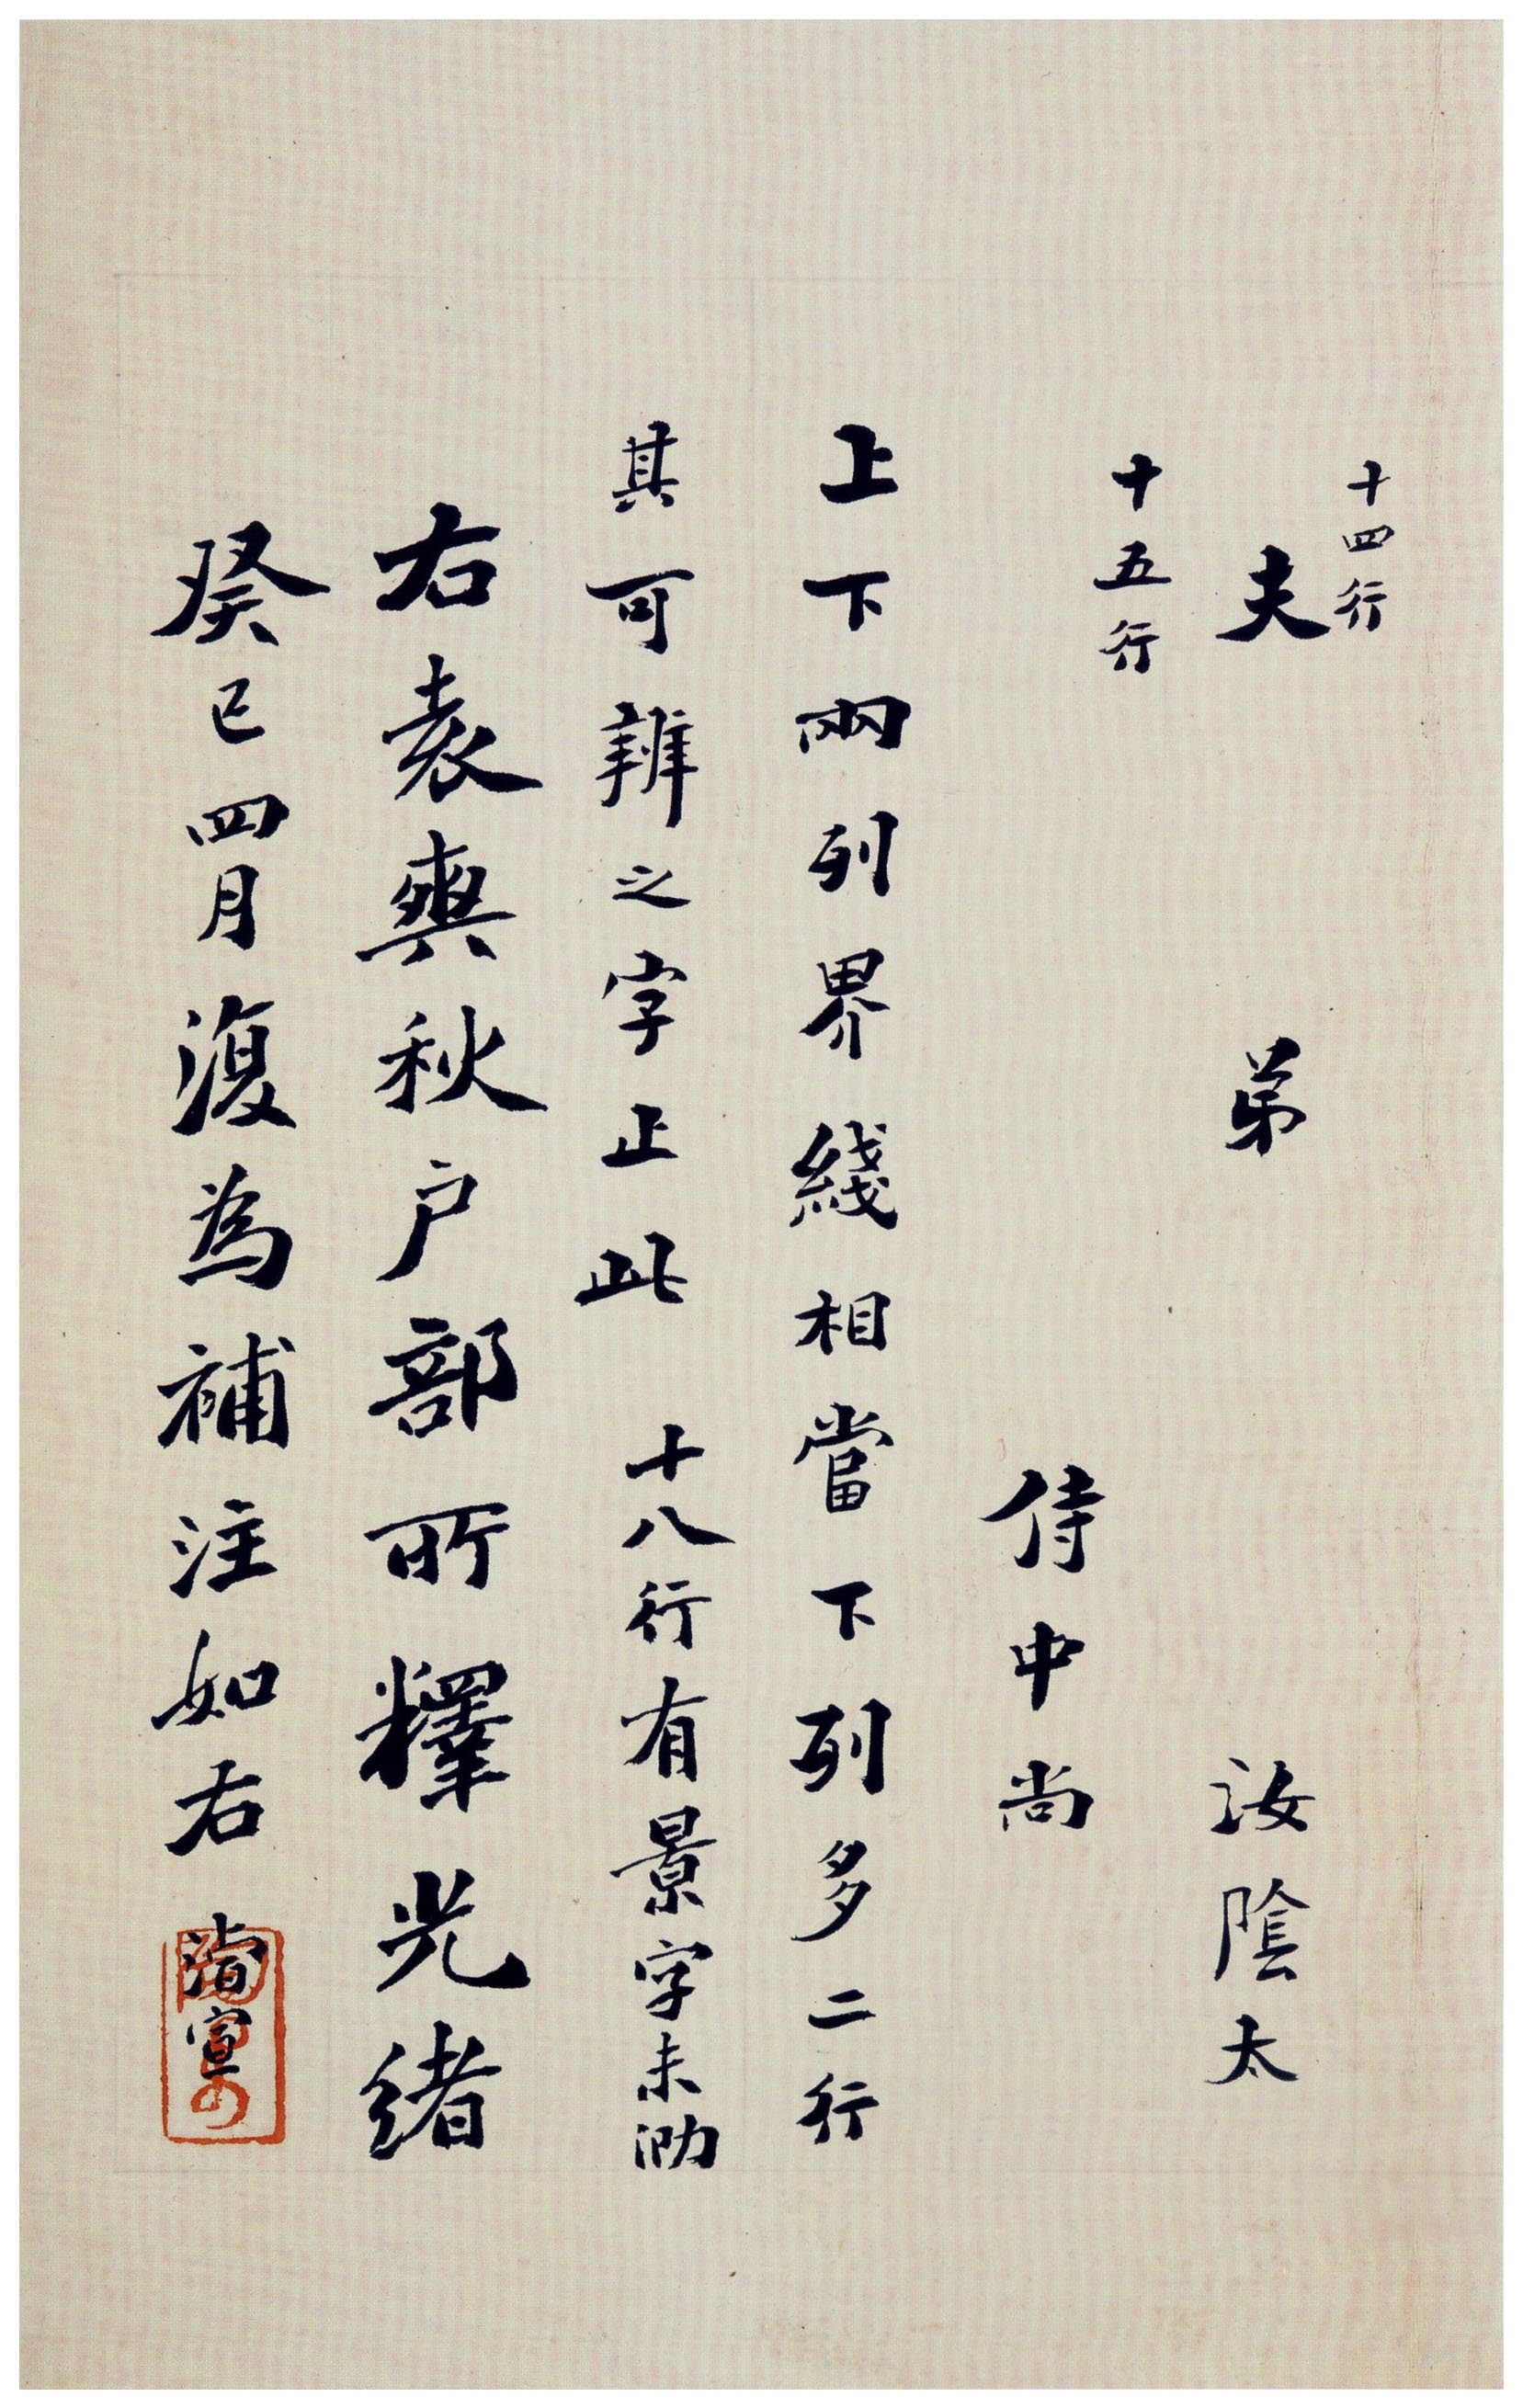 十四行
夫弟汝陰太
十五行
侍中尚
上下兩列界綫相當下列多二行
其可辨之字止此十八行有景字未泐
右袁爽秋户部所釋光緒
癸巳四月復為補注如右